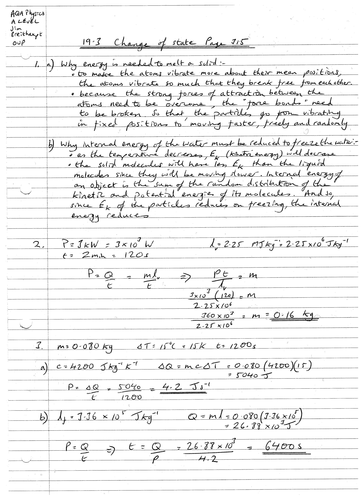 AQA Physics
A LEVEL
Jim
Breithaupt
OUP
19.3 Change of state Page 315
1. a) Why energy is needed to melt a solid:-
• to make the atoms vibrate more about their mean positions,
the atoms vibrate so much that they break free from each other.
• because the strong forces of attraction between the
atoms need to be overcome, the "force bonds" need
to be broken so that the particles go from vibrating
in fixed positions to moving faster, freely and randomly
b) Why internal energy of the water must be reduced to freeze the water:-
• as the temperature decreases, Ek (kinetic energy) will decrease
• the solid molecules will have less Ek than the liquid
molecules since they will be moving slower. Internal energy of
an object is the sum of the random distribution of the
kinetic and potential energies of its molecules. And so,
since Ek of the particles reduces on freezing, the internal
energy reduces
2. P = 3kW = 3×10³ W lv = 2.25 MJkg⁻¹ = 2.25×10⁶ Jkg⁻¹
t = 2min = 120s
P = Q/t = ml/t ⇒ Pt/lv = m
3×10³(120)/2.25×10⁶ = m
360×10³/2.25×10⁶ = m = 0.16 kg
3. m = 0.080 kg ΔT = 15°C = 15K t = 1200s
a) c = 4200 Jkg⁻¹K⁻¹ ΔQ = mcΔT = 0.080(4200)(15)
= 5040 J
P = ΔQ/t = 5040/1200 = 4.2 Js⁻¹
b) lf = 3.36 × 10⁵ Jkg⁻¹ Q = ml = 0.080(3.36×10⁵)
= 26.88×10³ J
P = Q/t ⇒ t = Q/P = 26.88×10³/4.2 = 6400s